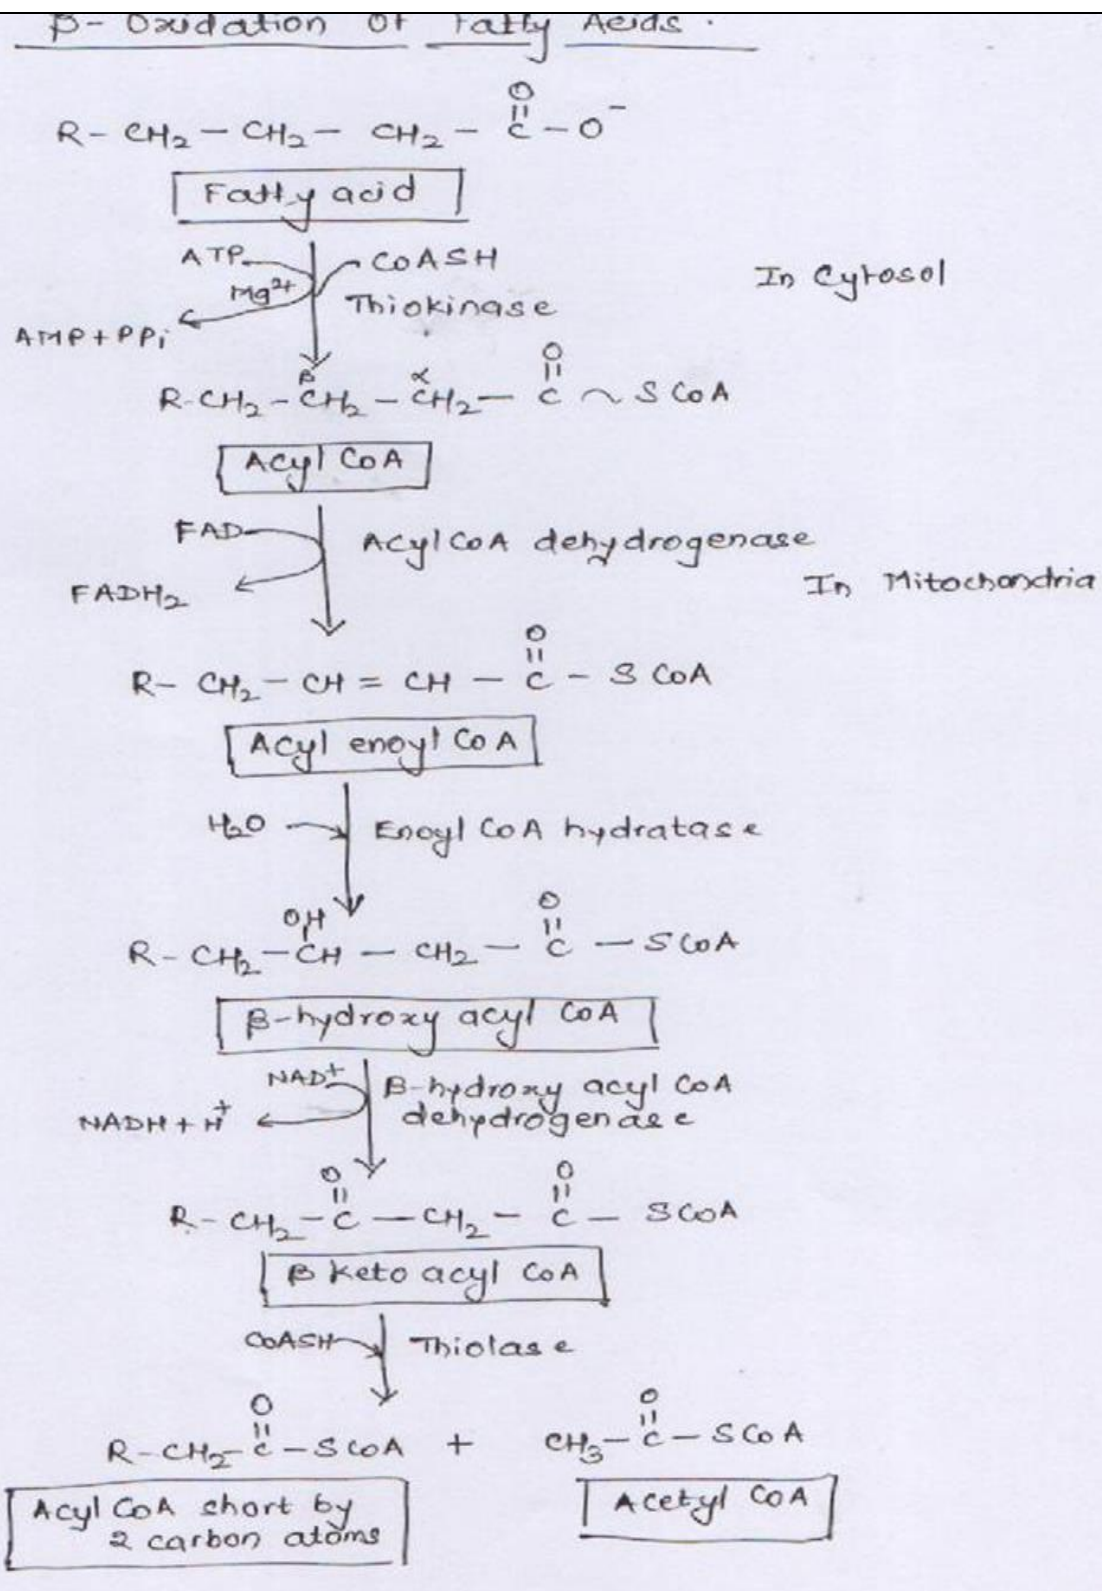 β- Oxidation Of Fatty Acids.
O
R- CH₂ - CH₂ - CH₂ - C - O⁻
Fatty acid
ATP CoASH
Mg²⁺ Thiokinase
In Cytosol
AMP + PPi
β α O
R-CH₂ - CH₂ - CH₂ - C ~ S CoA
Acyl CoA
FAD Acyl CoA dehydrogenase
FADH₂ In Mitochondria
O
R- CH₂ - CH = CH - C - S CoA
Acyl enoyl CoA
H₂O Enoyl CoA hydratase
OH O
R - CH₂ - CH - CH₂ - C - S CoA
β-hydroxy acyl CoA
NAD⁺ β-hydroxy acyl CoA
NADH + H⁺ dehydrogenase
O O
R - CH₂ - C - CH₂ - C - S CoA
β keto acyl CoA
CoASH Thiolase
O O
R-CH₂- C - S CoA + CH₃ - C - S CoA
Acyl CoA short by
2 carbon atoms
Acetyl CoA